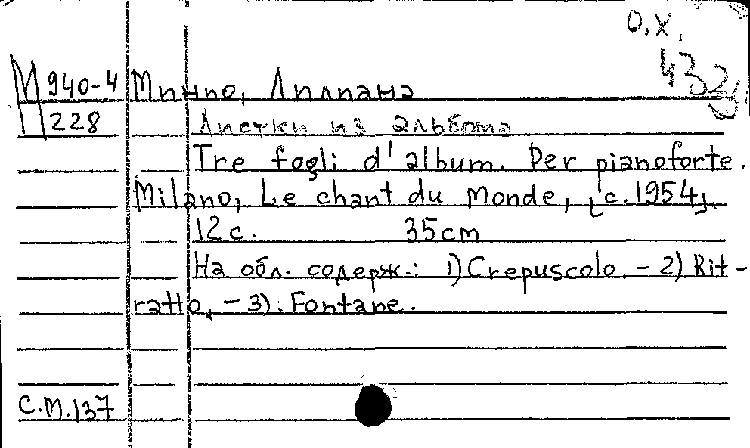 О.Х.
432
М 940-4 Минпо, Лилпана
П 228 Листки из альбома
Tre fogli d'album. Per pianoforte.
Milano, Le chant du Monde, [c.1954].
12 с. 35cm
На обл. содерж.: 1) Crepuscolo. - 2) Rit-
ratto, - 3). Fontane.
С.М.137